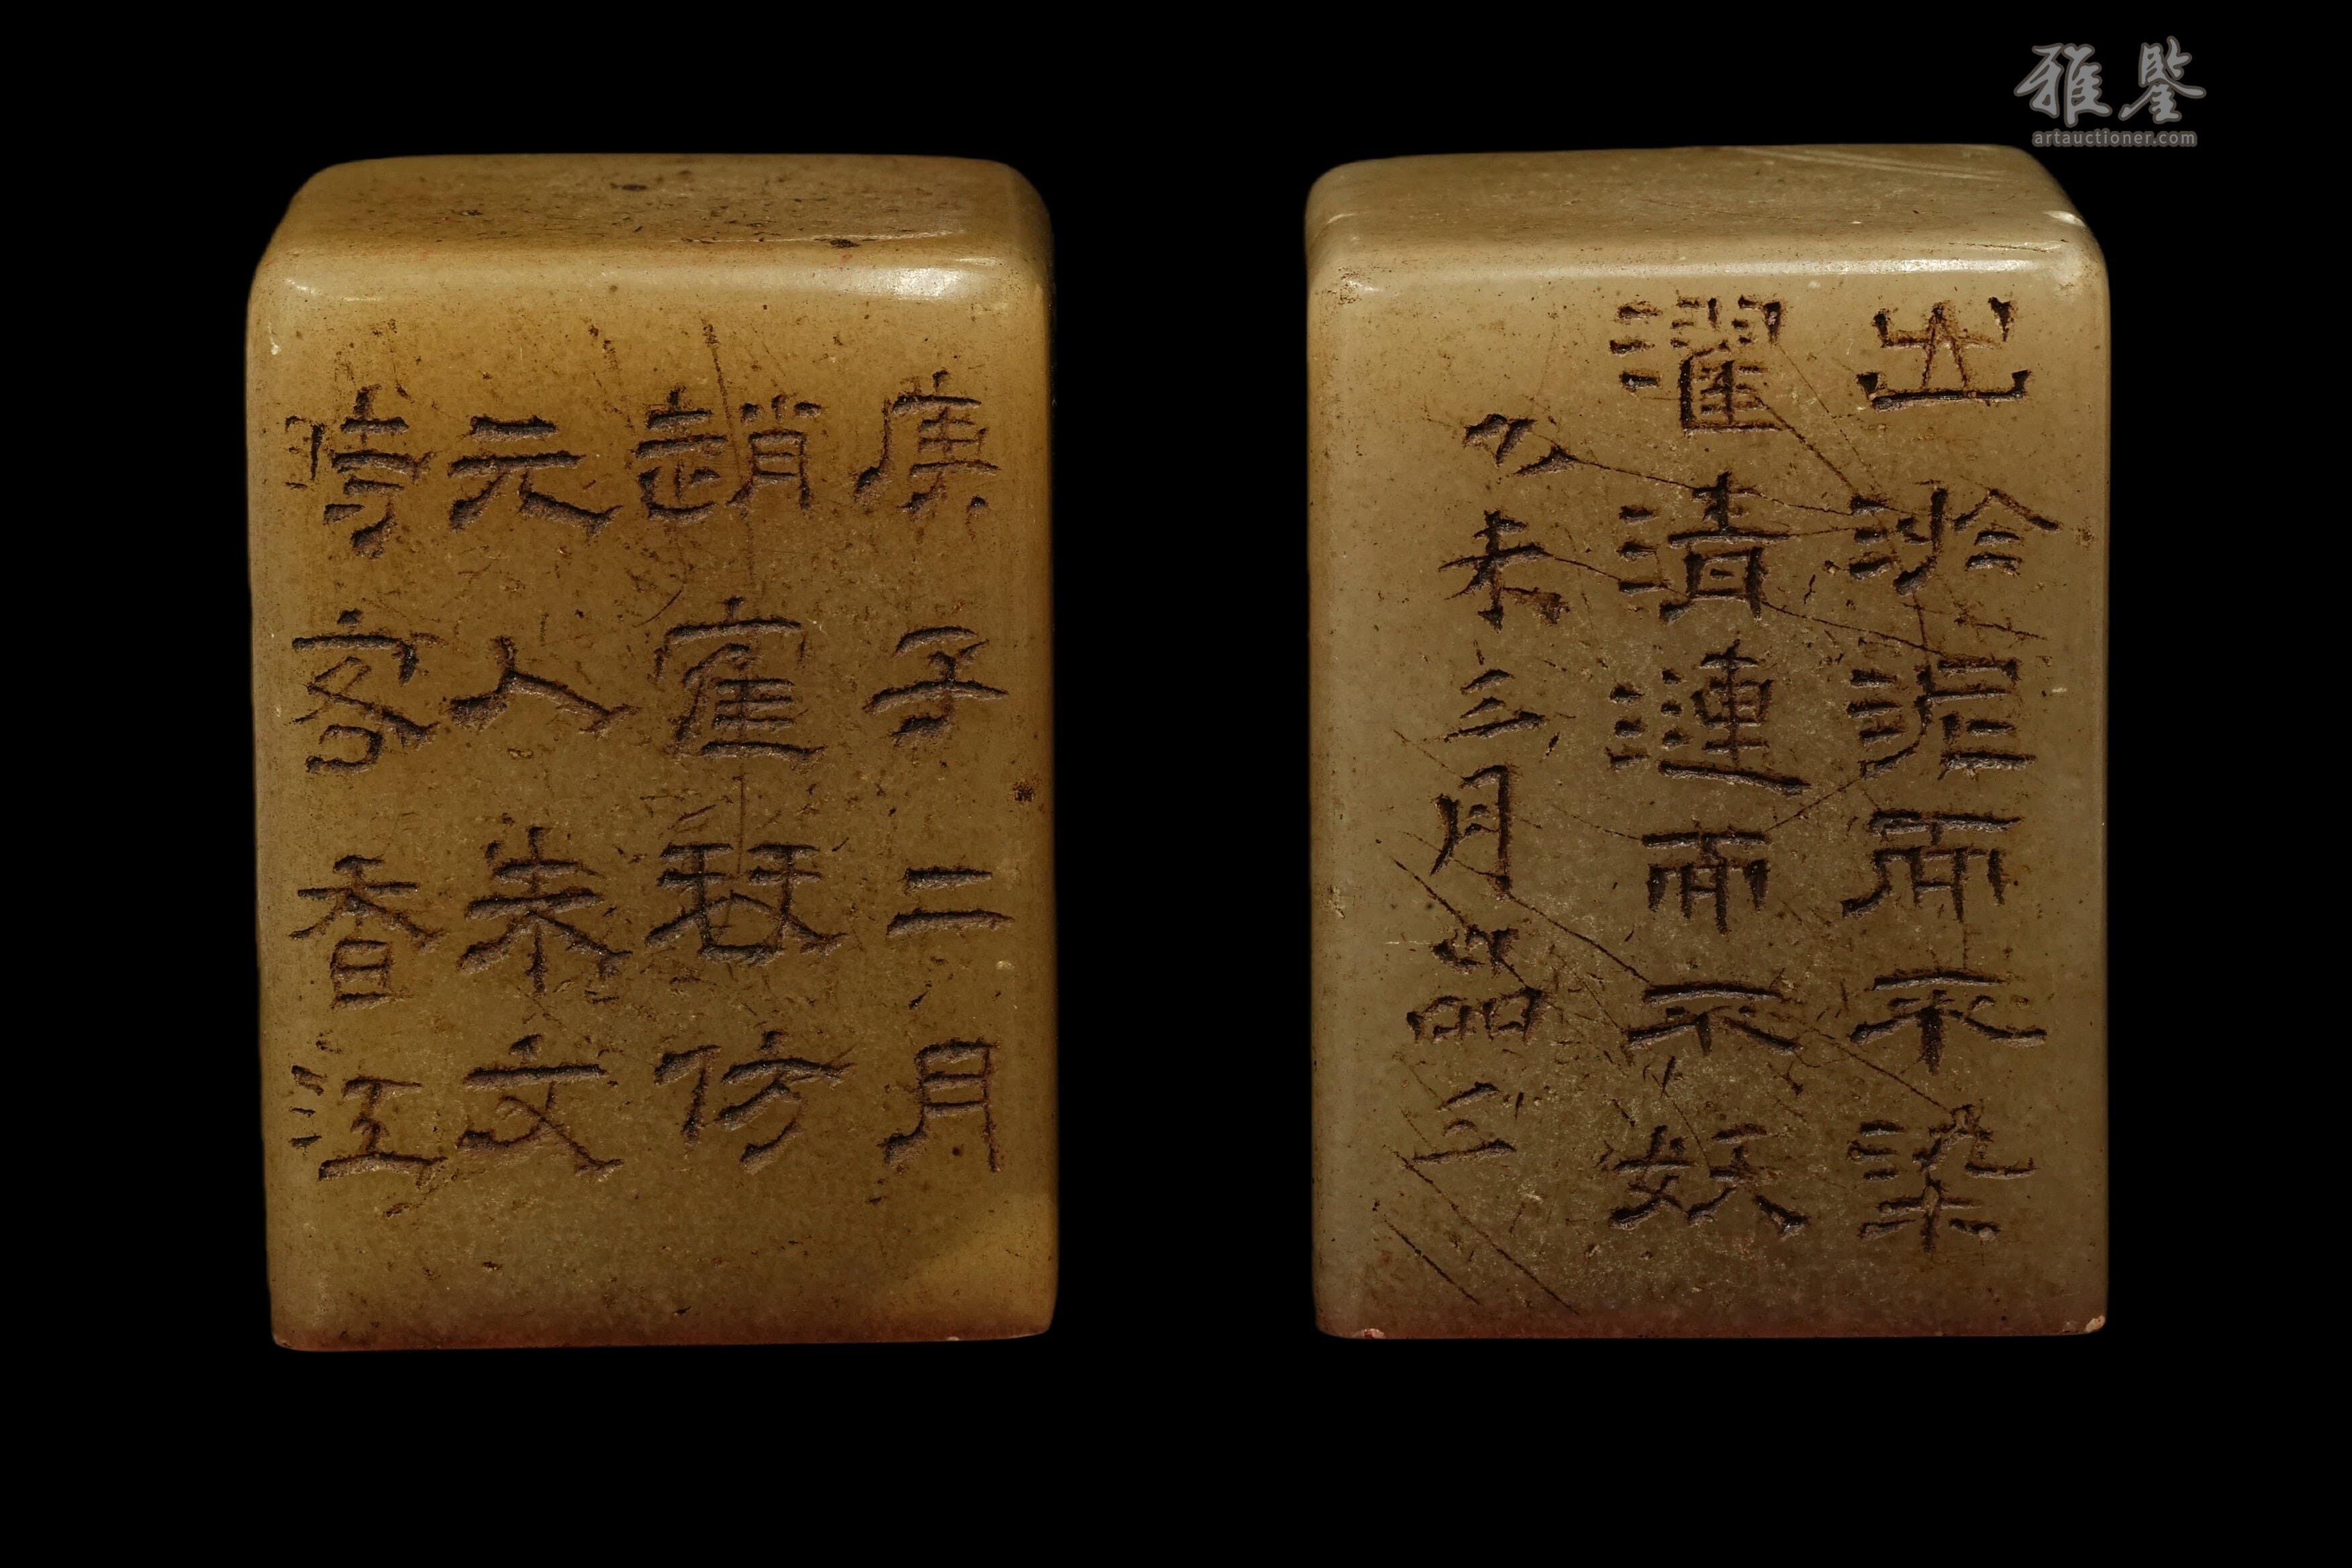 雅鉴
artauctioner.com
庚子二月
趙寉琴仿
元人朱文
時客香江
出淤泥而不染
濯清漣而不妖
乙未三月品三